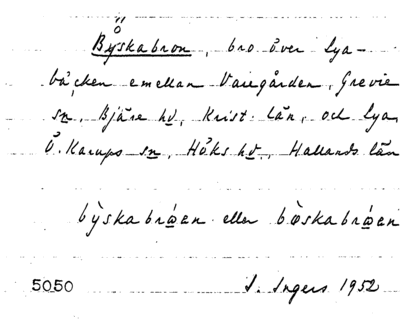 Byskabron, bro över Lya-
bäcken emellan Varegården, Grevie
sn, Bjäre hd, Krist. län, och Lya,
Ö. Karups sn, Höks hd, Hallands län
5050 I. Ingers 1952